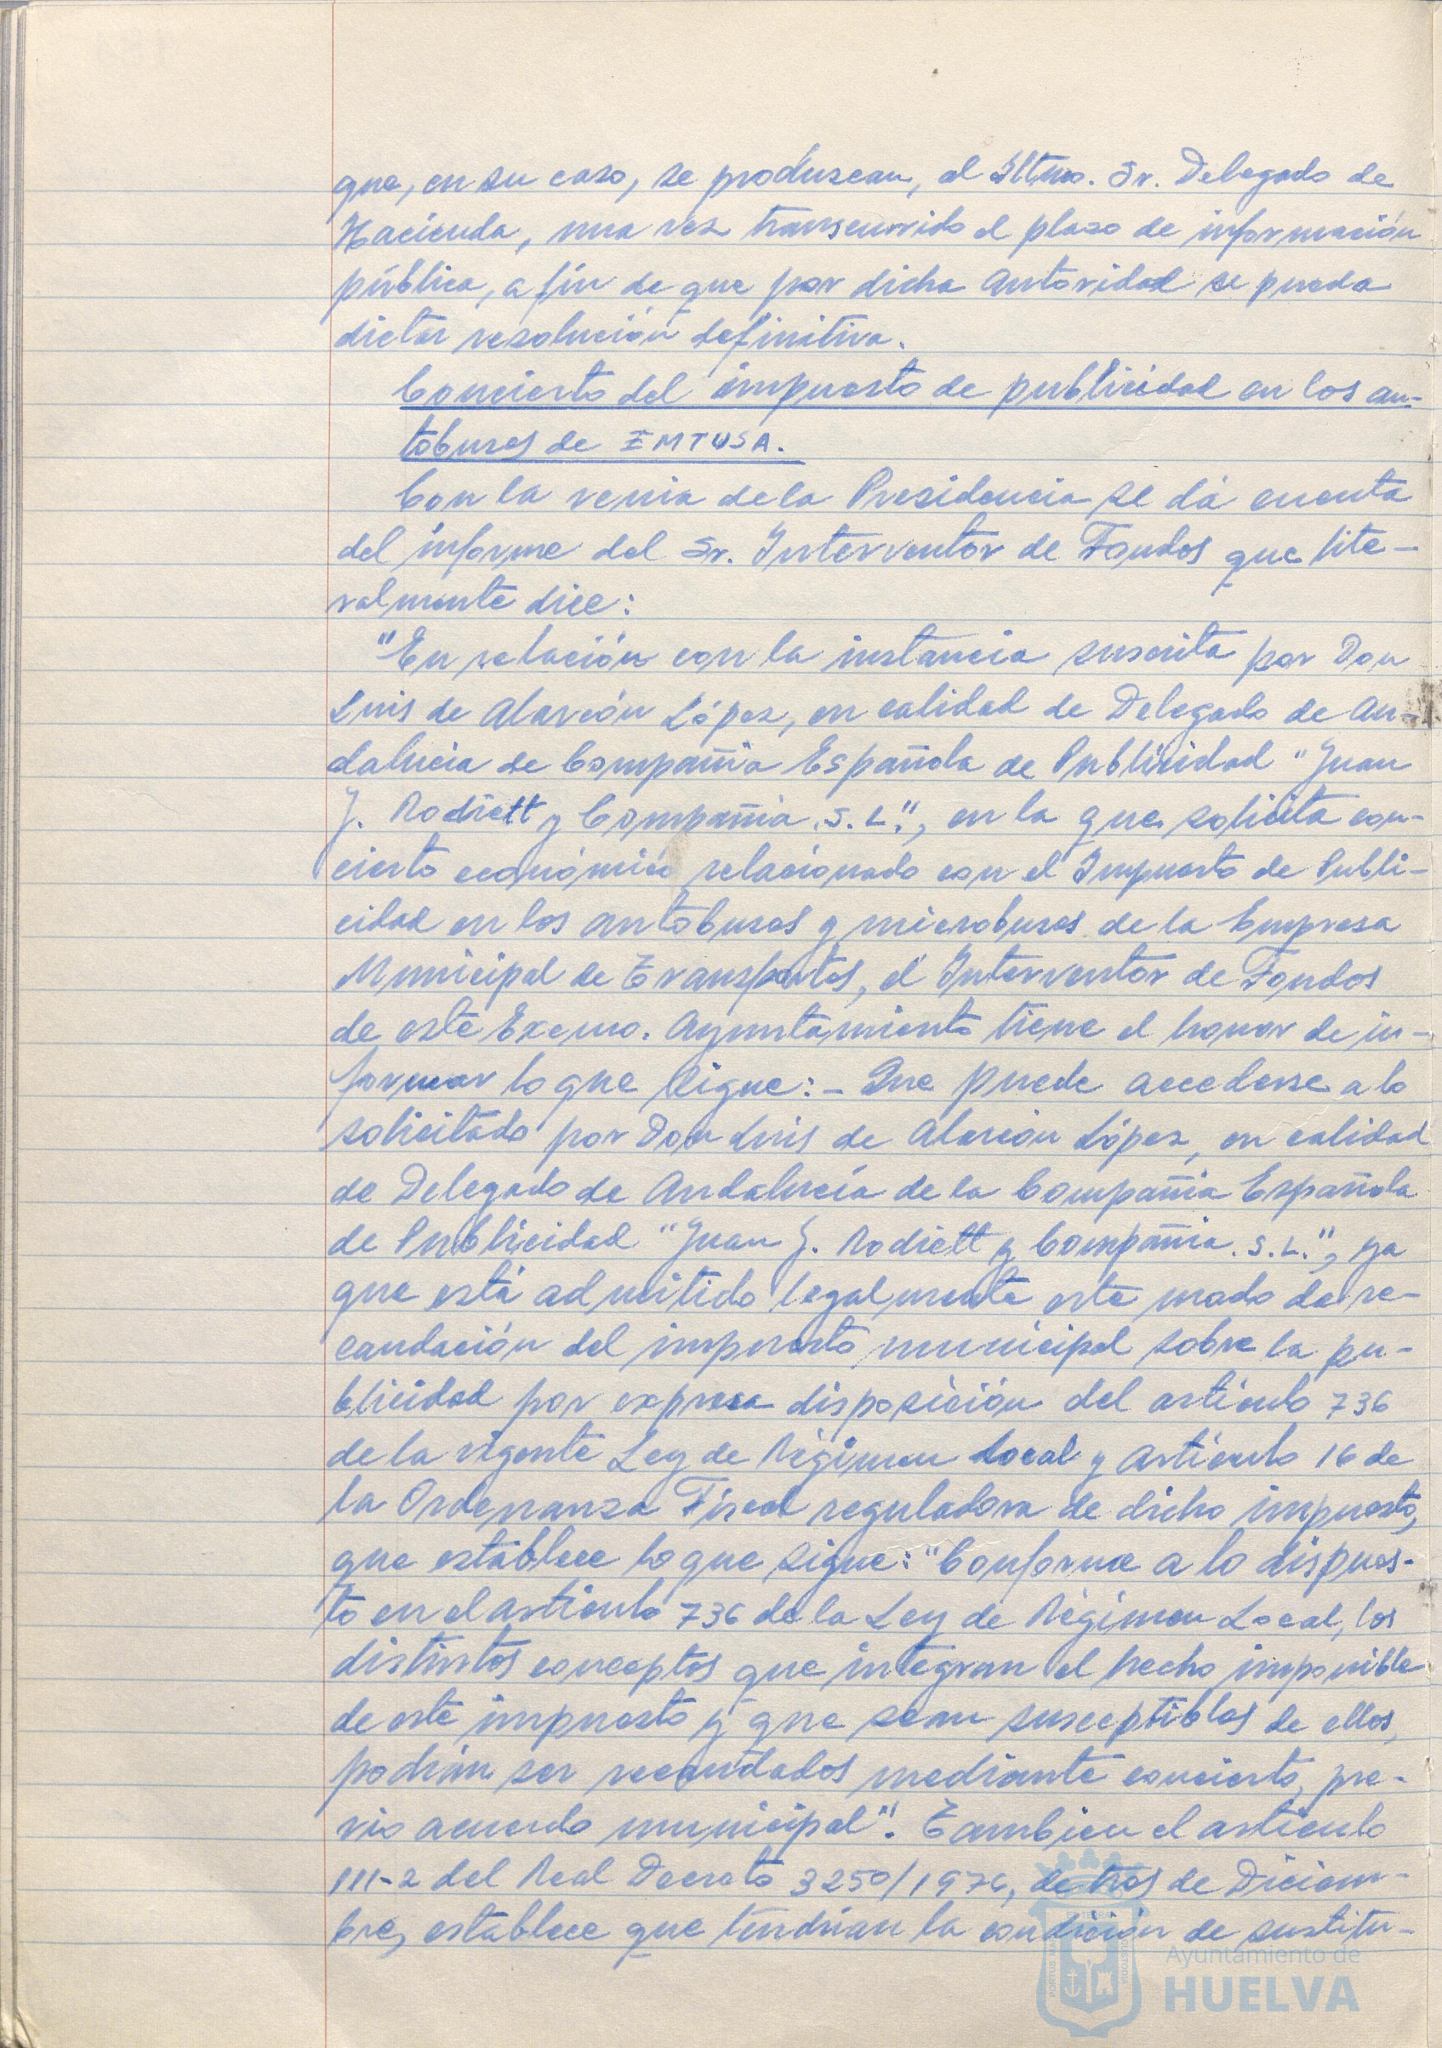 que, en su caso, se produzcan, al Iltmo. Sr. Delegado de
Hacienda, una vez transcurrido el plazo de información
pública, a fin de que por dicha Autoridad se pueda
dictar resolución definitiva.
Concierto del impuesto de publicidad en los au-
tobuses de EMTUSA.
Con la venia de la Presidencia se dá cuenta
del informe del Sr. Interventor de Fondos que lite-
ralmente dice:
"En relación con la instancia suscrita por Don
Luis de Alarcón López, en calidad de Delegado de An-
dalucia de Compañia Española de Publicidad "Juan
J. Rodiett y Compañia. S. L.", en la que solicita con-
cierto económico relacionado con el Impuesto de Publi-
cidad en los autobuses y microbuses de la Empresa
Municipal de Transportes, el Interventor de Fondos
de este Excmo. Ayuntamiento tiene el honor de in-
formar lo que sigue: - Que puede accederse a lo
solicitado por Don Luis de Alarcón López, en calidad
de Delegado de Andalucía de la Compañia Española
de Publicidad "Juan J. Rodiett y Compañia. S. L.", ya
que está admitido legalmente este modo de re-
caudación del impuesto municipal sobre la pu-
blicidad por expresa disposición del artículo 736
de la vigente Ley de Régimen Local y Artículo 16 de
la Ordenanza Fiscal reguladora de dicho impuesto,
que establece lo que sigue: "Conforme a lo dispues-
to en el artículo 736 de la Ley de Régimen Local, los
distintos conceptos que integran el hecho imponible
de este impuesto y que sean susceptibles de ellos,
podrán ser recaudados mediante concierto, pre-
vio acuerdo municipal". Tambien el artículo
111-2 del Real Decreto 3250/1976, de tres de Diciem-
bre, establece que tendrían la condición de sustitu-
Ayuntamiento de
HUELVA